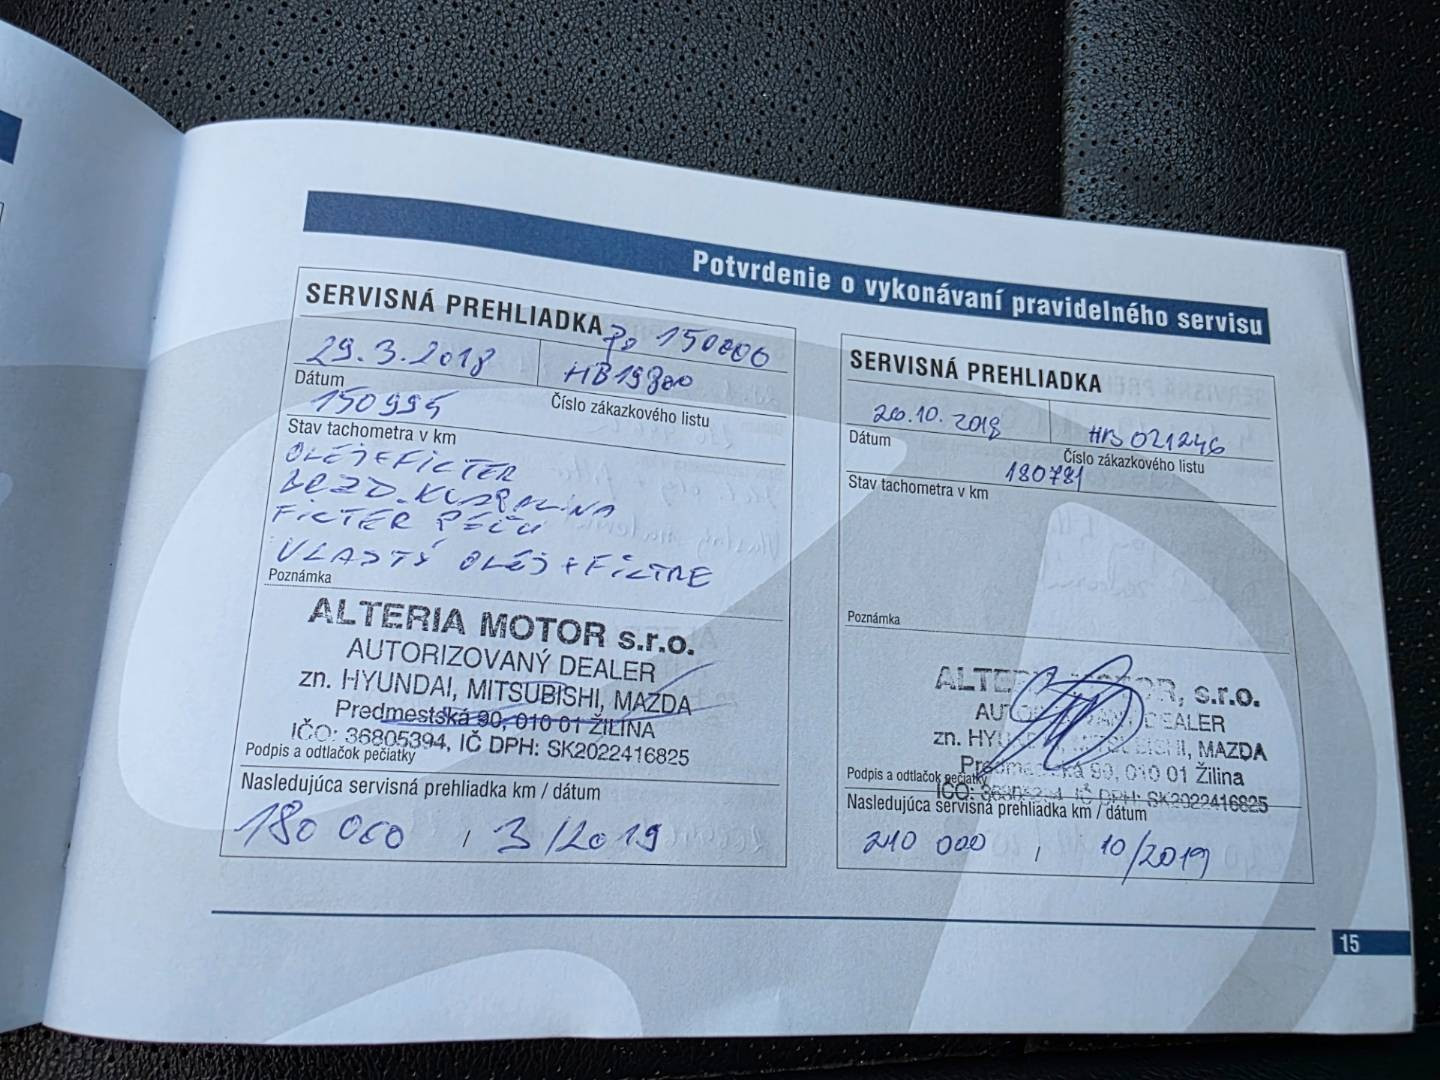 Potvrdenie o vykonávaní pravidelného servisu
SERVISNÁ PREHLIADKA po 150000
29.3.2018 HB19800
Dátum Číslo zákazkového listu
150995
Stav tachometra v km
OLEJ+FILTER
BRZD. KVAPALINA
FILTER PEĽU
VLASTÝ OLEJ+FILTRE
Poznámka
ALTERIA MOTOR s.r.o.
AUTORIZOVANÝ DEALER
zn. HYUNDAI, MITSUBISHI, MAZDA
Predmestská 90, 010 01 ŽILINA
IČO: 36805394, IČ DPH: SK2022416825
Podpis a odtlačok pečiatky
Nasledujúca servisná prehliadka km / dátum
180 000 , 3/2019
SERVISNÁ PREHLIADKA
26.10.2018 HB021246
Dátum Číslo zákazkového listu
180781
Stav tachometra v km
Poznámka
ALTERIA MOTOR, s.r.o.
AUTORIZOVANÝ DEALER
zn. HYUNDAI, MITSUBISHI, MAZDA
Predmestská 90, 010 01 Žilina
Podpis a odtlačok pečiatky
IČO: 36805394, IČ DPH: SK2022416825
Nasledujúca servisná prehliadka km / dátum
210 000 , 10/2019
15